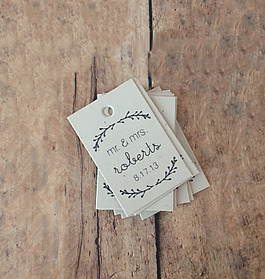 mr. & mrs.
roberts
8.17.13